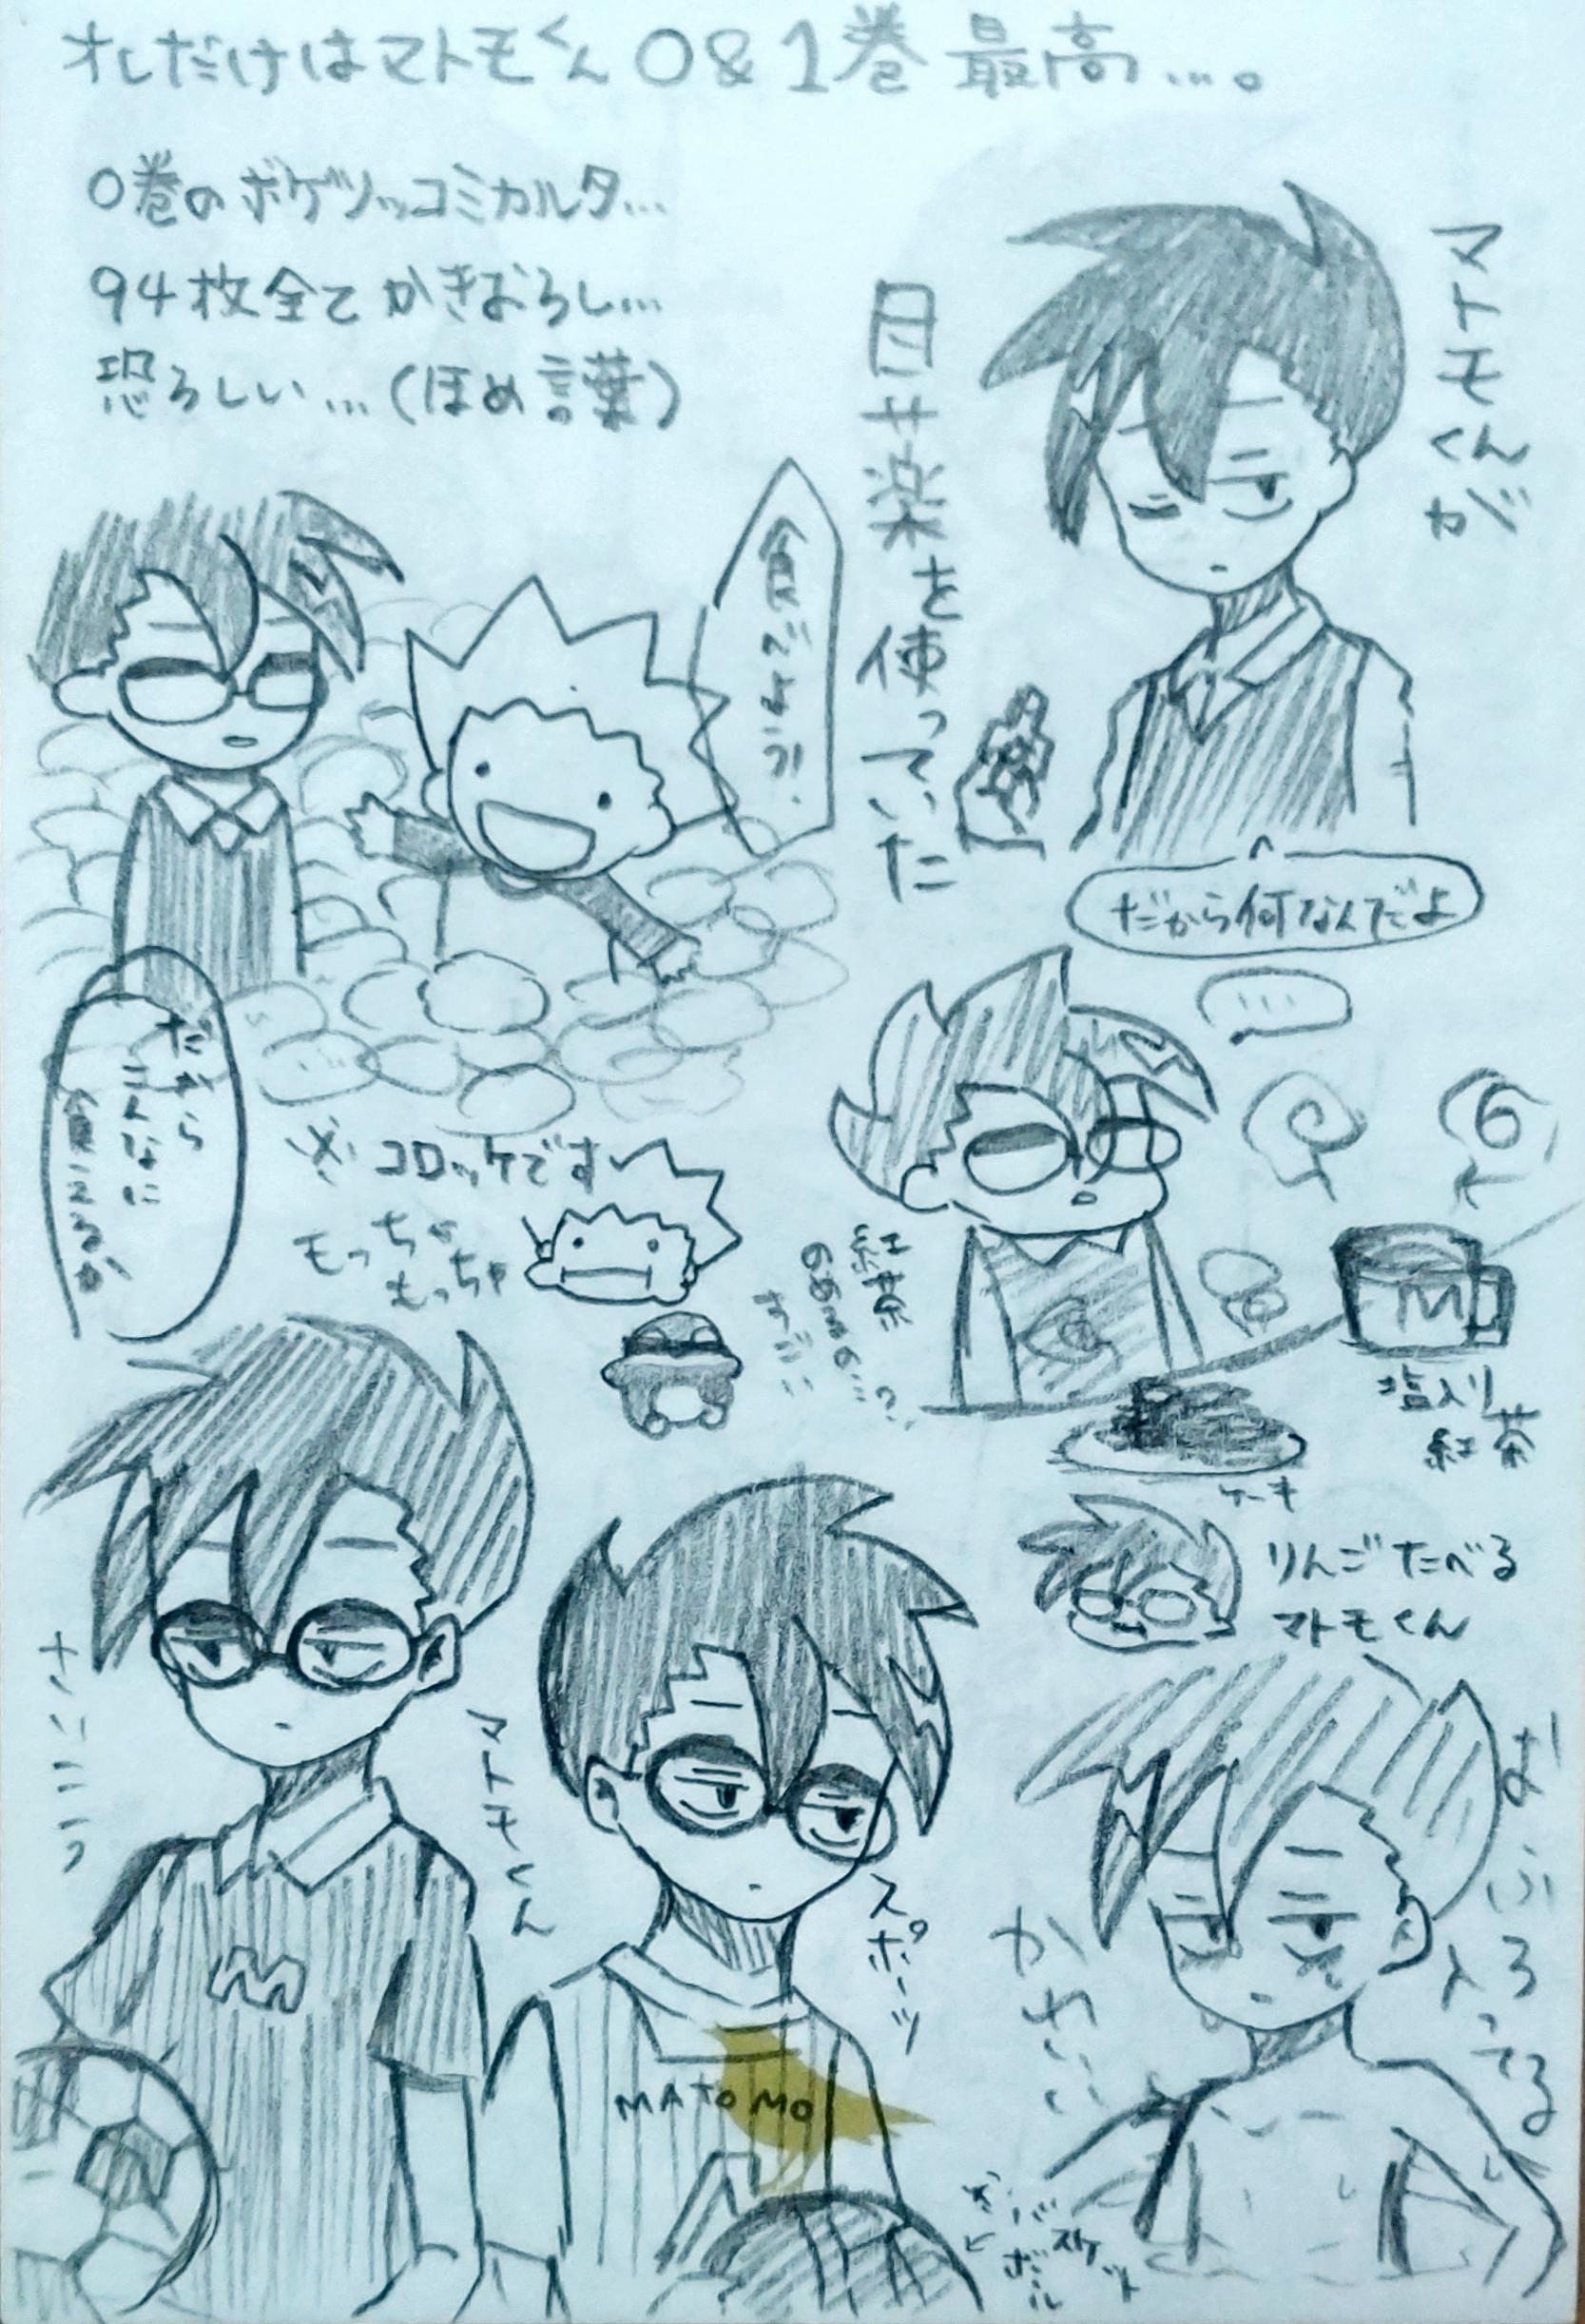 オレだけはマトモくん0&1巻 最高…。
0巻のボケツッコミカルタ…
94枚全てかきおろし…
恐ろしい…(ほめ言葉)
マトモくんが
目薬を使っていた
だから何なんだよ
…
だから
こんなに
食えるか
※コロッケです
もっちゃ
もっちゃ
紅茶
M
塩入り
紅茶
ケーキ
りんごたべる
マトモくん
マトモくん
スポーツ
おふろ入ってる
かわいい
m
MATOMO
バスケット
ボール